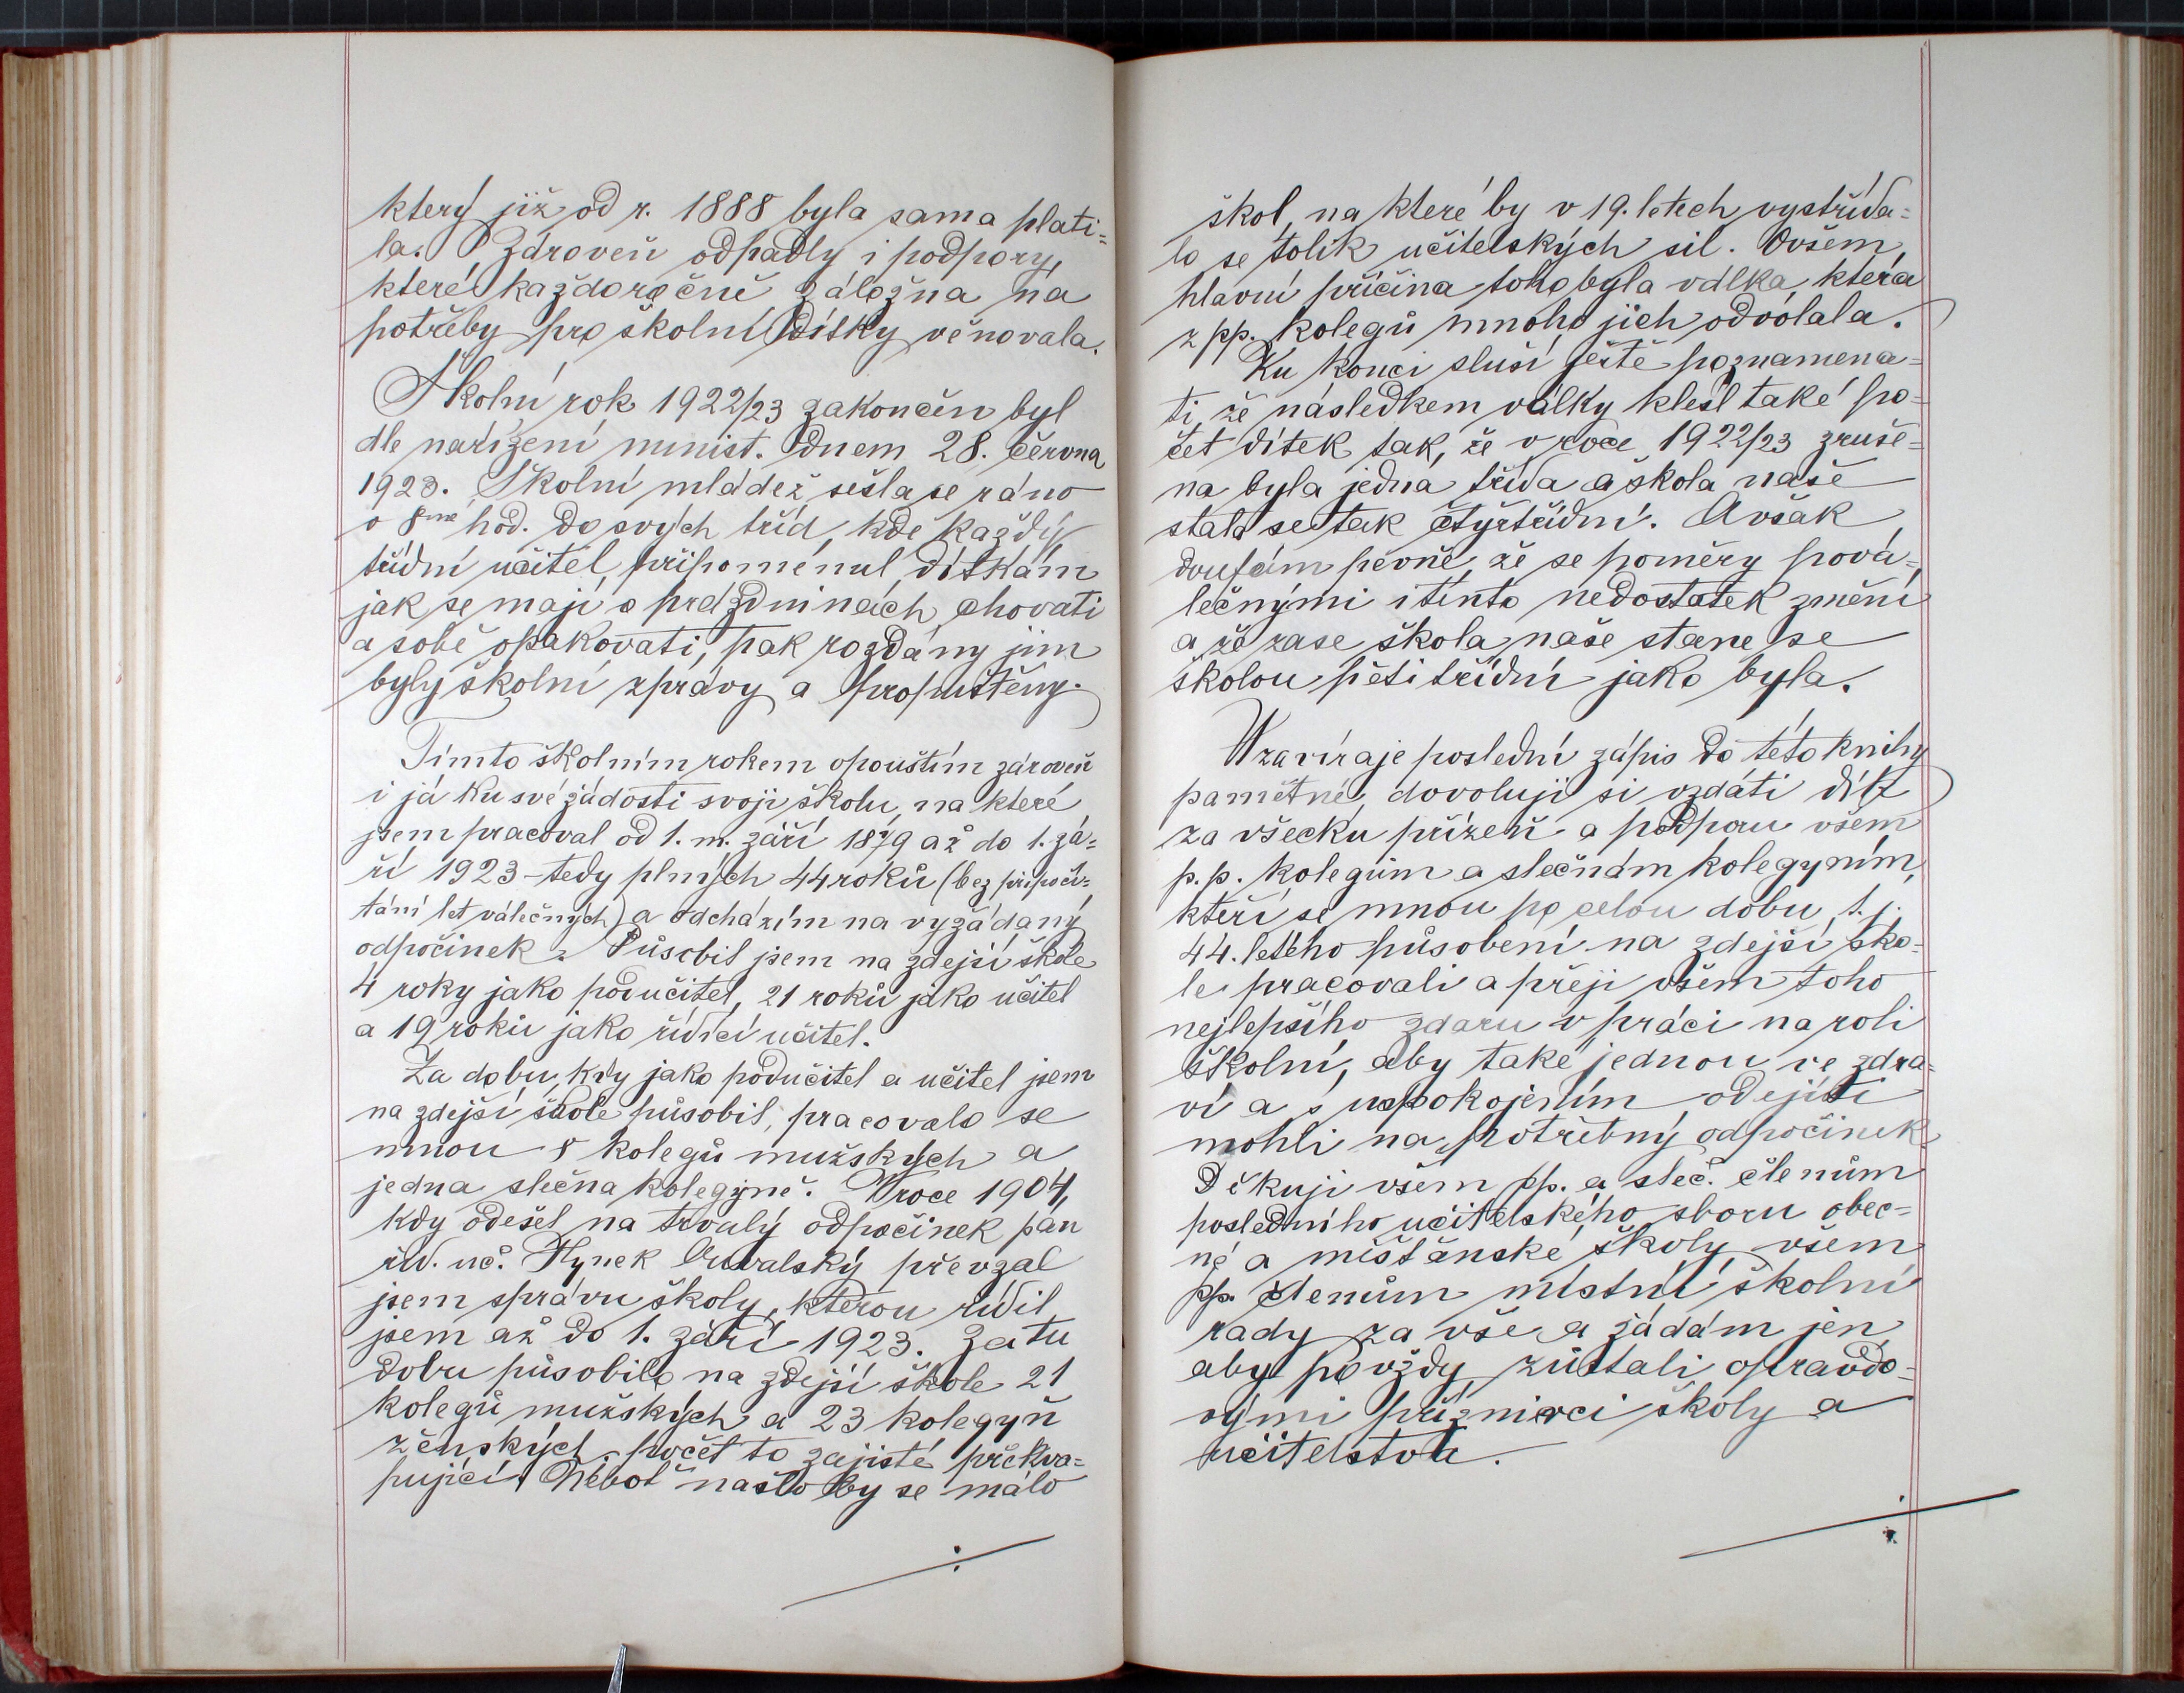 který již od r. 1888 byla sama plati=
la. Zároveň odpadly i podpory,
které každoročně záložna na
potřeby pro školní dítky věnovala.
Školní rok 1922/23 zakončen byl
dle nařízení minist. dnem 28. června
1923. Školní mládež sešla se ráno
o 8mé hod. do svých tříd, kde každý
třídní učitel připomenul dítkám
jak se mají o prázdninách chovati
a sobě opakovati, pak rozdány jim
byly školní zprávy a propuštěny.
Tímto školním rokem opouštím zároveň
i já ku své žádosti svoji školu, na které
jsem pracoval od 1. m. září 1879 až do 1. zá=
ří 1923 – tedy plných 44 roků (bez připočí=
tání let válečných) a odcházím na vyžádaný
odpočinek. Působil jsem na zdejší škole
4 roky jako podučitel, 21 roků jako učitel
a 19 roků jako řídící učitel.
Za dobu, kdy jako podučitel a učitel jsem
na zdejší škole působil, pracovalo se
mnou 8 kolegů mužských a
jedna slečna kolegyně. V roce 1904,
kdy odešel na trvalý odpočinek pan
říd. uč. Hynek převzal
jsem správu školy, kterou řídil
jsem až do 1. září 1923. Za tu
dobu působilo na zdejší škole 21
kolegů mužských a 23 kolegyň
ženských, počet to zajisté překva=
pující. Neboť našlo by se málo
škol, na které by v 19. letech vystřída=
lo se tolik učitelských sil. Ovšem,
hlavní příčina toho byla válka, která
z pp. kolegů mnoho jich odvolala.
Ku konci sluší ještě poznamena=
ti, že následkem války klesl také po=
čet dítek tak, že v roce 1922/23 zruše=
na byla jedna třída a škola naše
stala se tak čtyřtřídní. Avšak
doufám pevně, že se poměry pová=
lečnými i tento nedostatek změní
a že zase škola naše stane se
školou pětitřídní jako byla.
Uzavíraje poslední zápis do této knihy
pamětné, dovoluji si vzdáti dík
za všecku přízeň a podporu všem
p. p. kolegům a slečnám kolegyním,
kteří se mnou po celou dobu t. j.
44. letého působení na zdejší ško=
le pracovali a přeji všem toho
nejlepšího zdaru v práci na roli
školní, aby také jednou ve zdra=
ví a s uspokojením odejíti
mohli na potřebný odpočinek
Děkuji všem pp. a sleč. členům
posledního učitelského sboru obec=
né a měšťanské školy, všem
pp. členům místní školní
rady za vše a žádám jen,
aby povždy zůstali opravdo=
vými příznivci školy a
učitelstva.